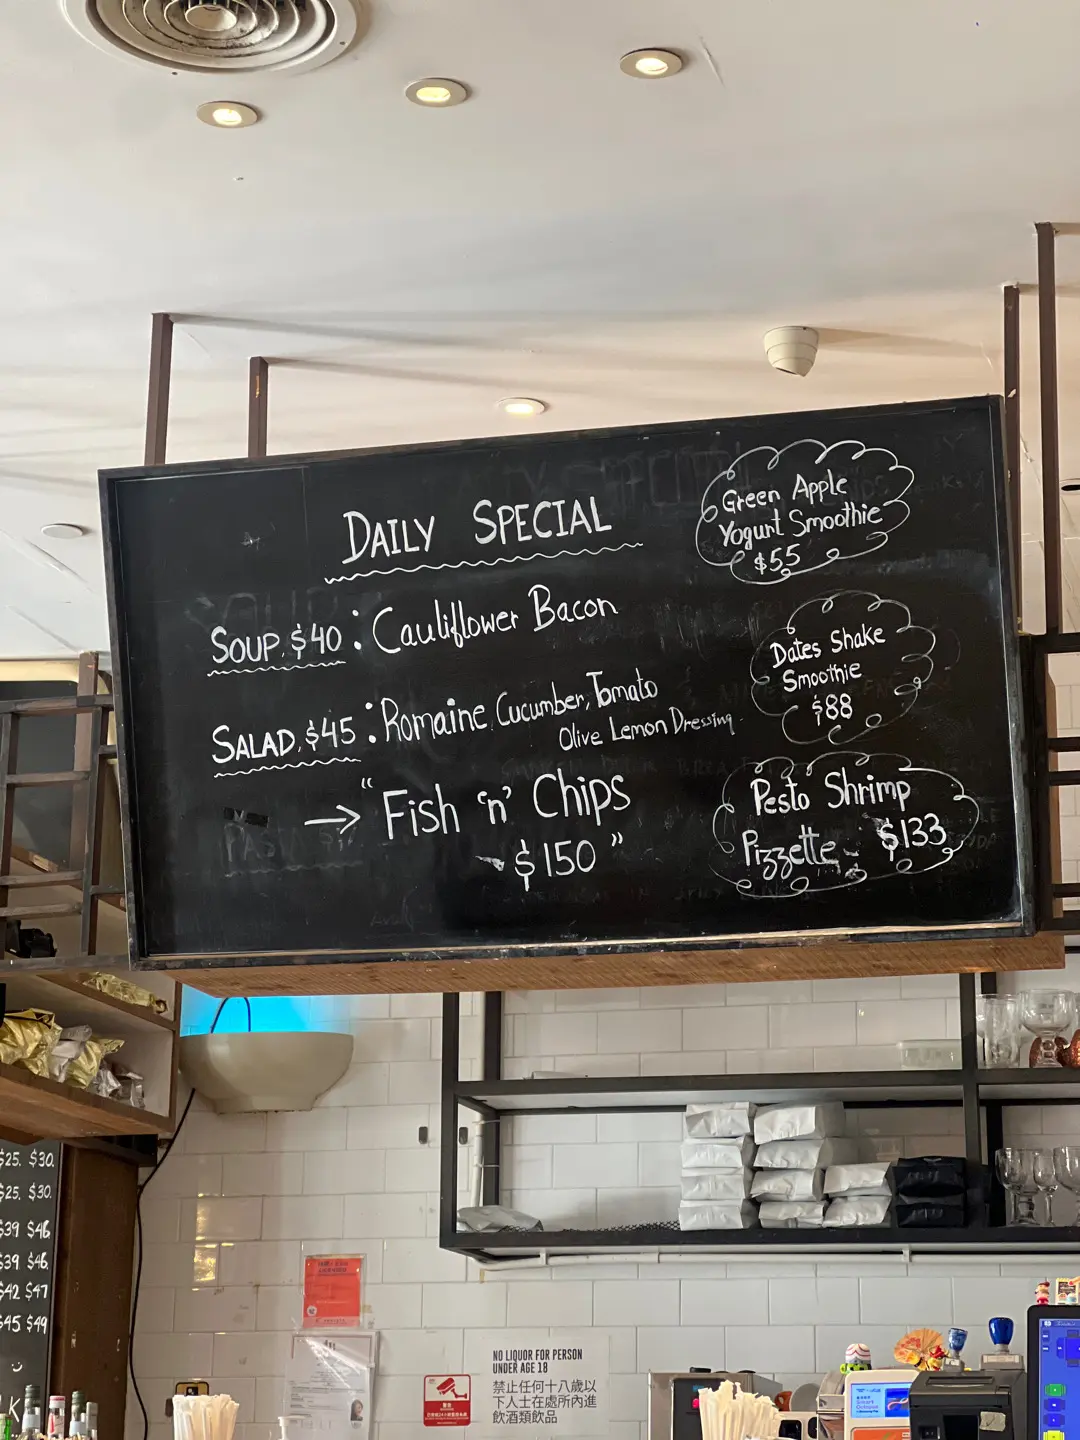 DAILY SPECIAL
SOUP. $40 : Cauliflower Bacon
SALAD. $45 : Romaine, Cucumber, Tomato
Olive Lemon Dressing
→ "Fish 'n' Chips
~ $150"
Green Apple
Yogurt Smoothie
$55
Dates Shake
Smoothie
$88
Pesto Shrimp
Pizzette ~ $133
$25. $30.
$25. $30.
$39 $46
$39 $46
$42 $47
$45 $49
NO LIQUOR FOR PERSON
UNDER AGE 18
禁止任何十八歲以
下人士在處所內進
飲酒類飲品